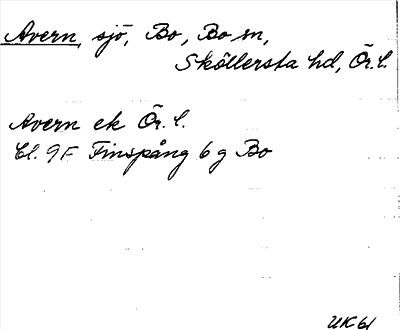 Avern, sjö, Bo, Bo sn,
Sköllersta hd, Ör. l.
Avern ek Ör. l.
Bl. 9F Finspång 6 g Bo
UK 61